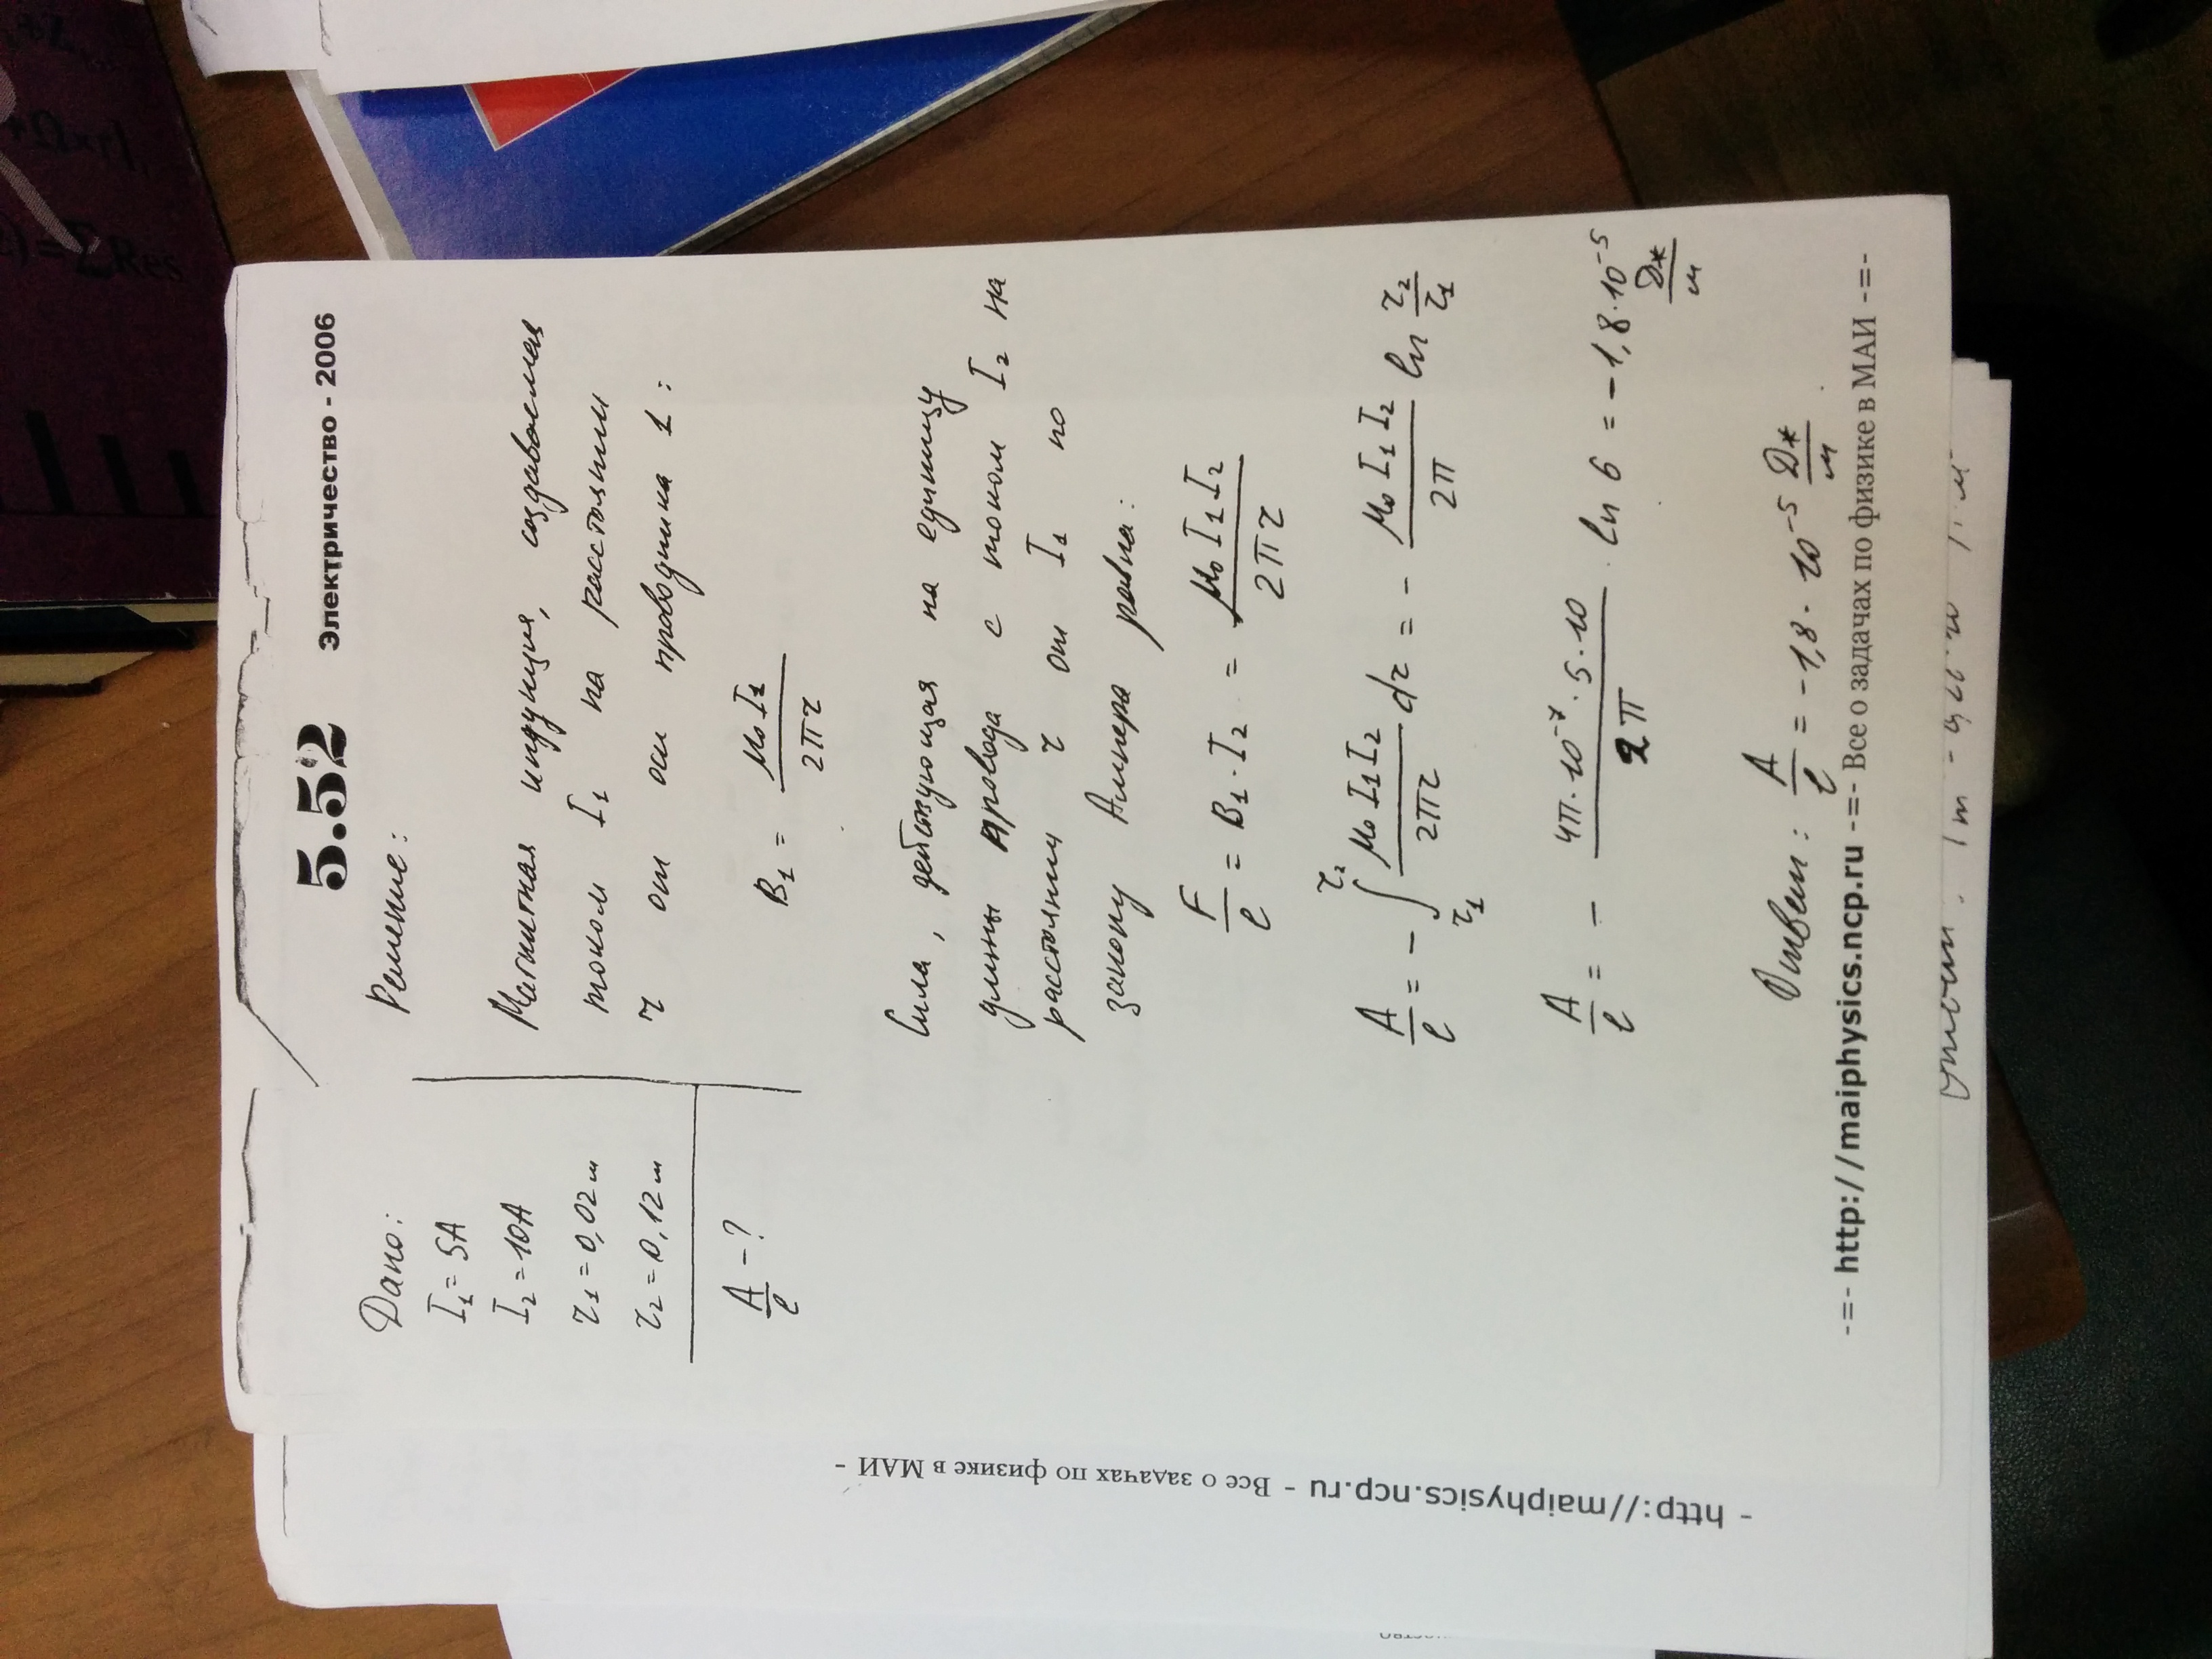 5.52 Электричество - 2006
Дано:
I₁ = 5А
I₂ = 10А
r₁ = 0,02м
r₂ = 0,12м
A/ℓ - ?
Решение:
Магнитная индукция, создаваемая
током I₁ на расстоянии
r от оси проводника 1:
B₁ = μ₀I₁/2πr
Сила, действующая на единицу
длины провода с током I₂ на
расстоянии r от I₁ по
закону Ампера равна:
F/ℓ = B₁·I₂ = μ₀I₁I₂/2πr
A/ℓ = - ∫_{r₁}^{r₂} μ₀I₁I₂/2πr dr = - μ₀I₁I₂/2π ln r₂/r₁
A/ℓ = - 4π·10⁻⁷·5·10/2π · ln 6 = -1,8·10⁻⁵ Дж/м
Ответ: A/ℓ = -1,8·10⁻⁵ Дж/м
-=- http://maiphysics.ncp.ru -=- Все о задачах по физике в МАИ -=-
- http://maiphysics.ncp.ru - Все о задачах по физике в МАИ -
Res